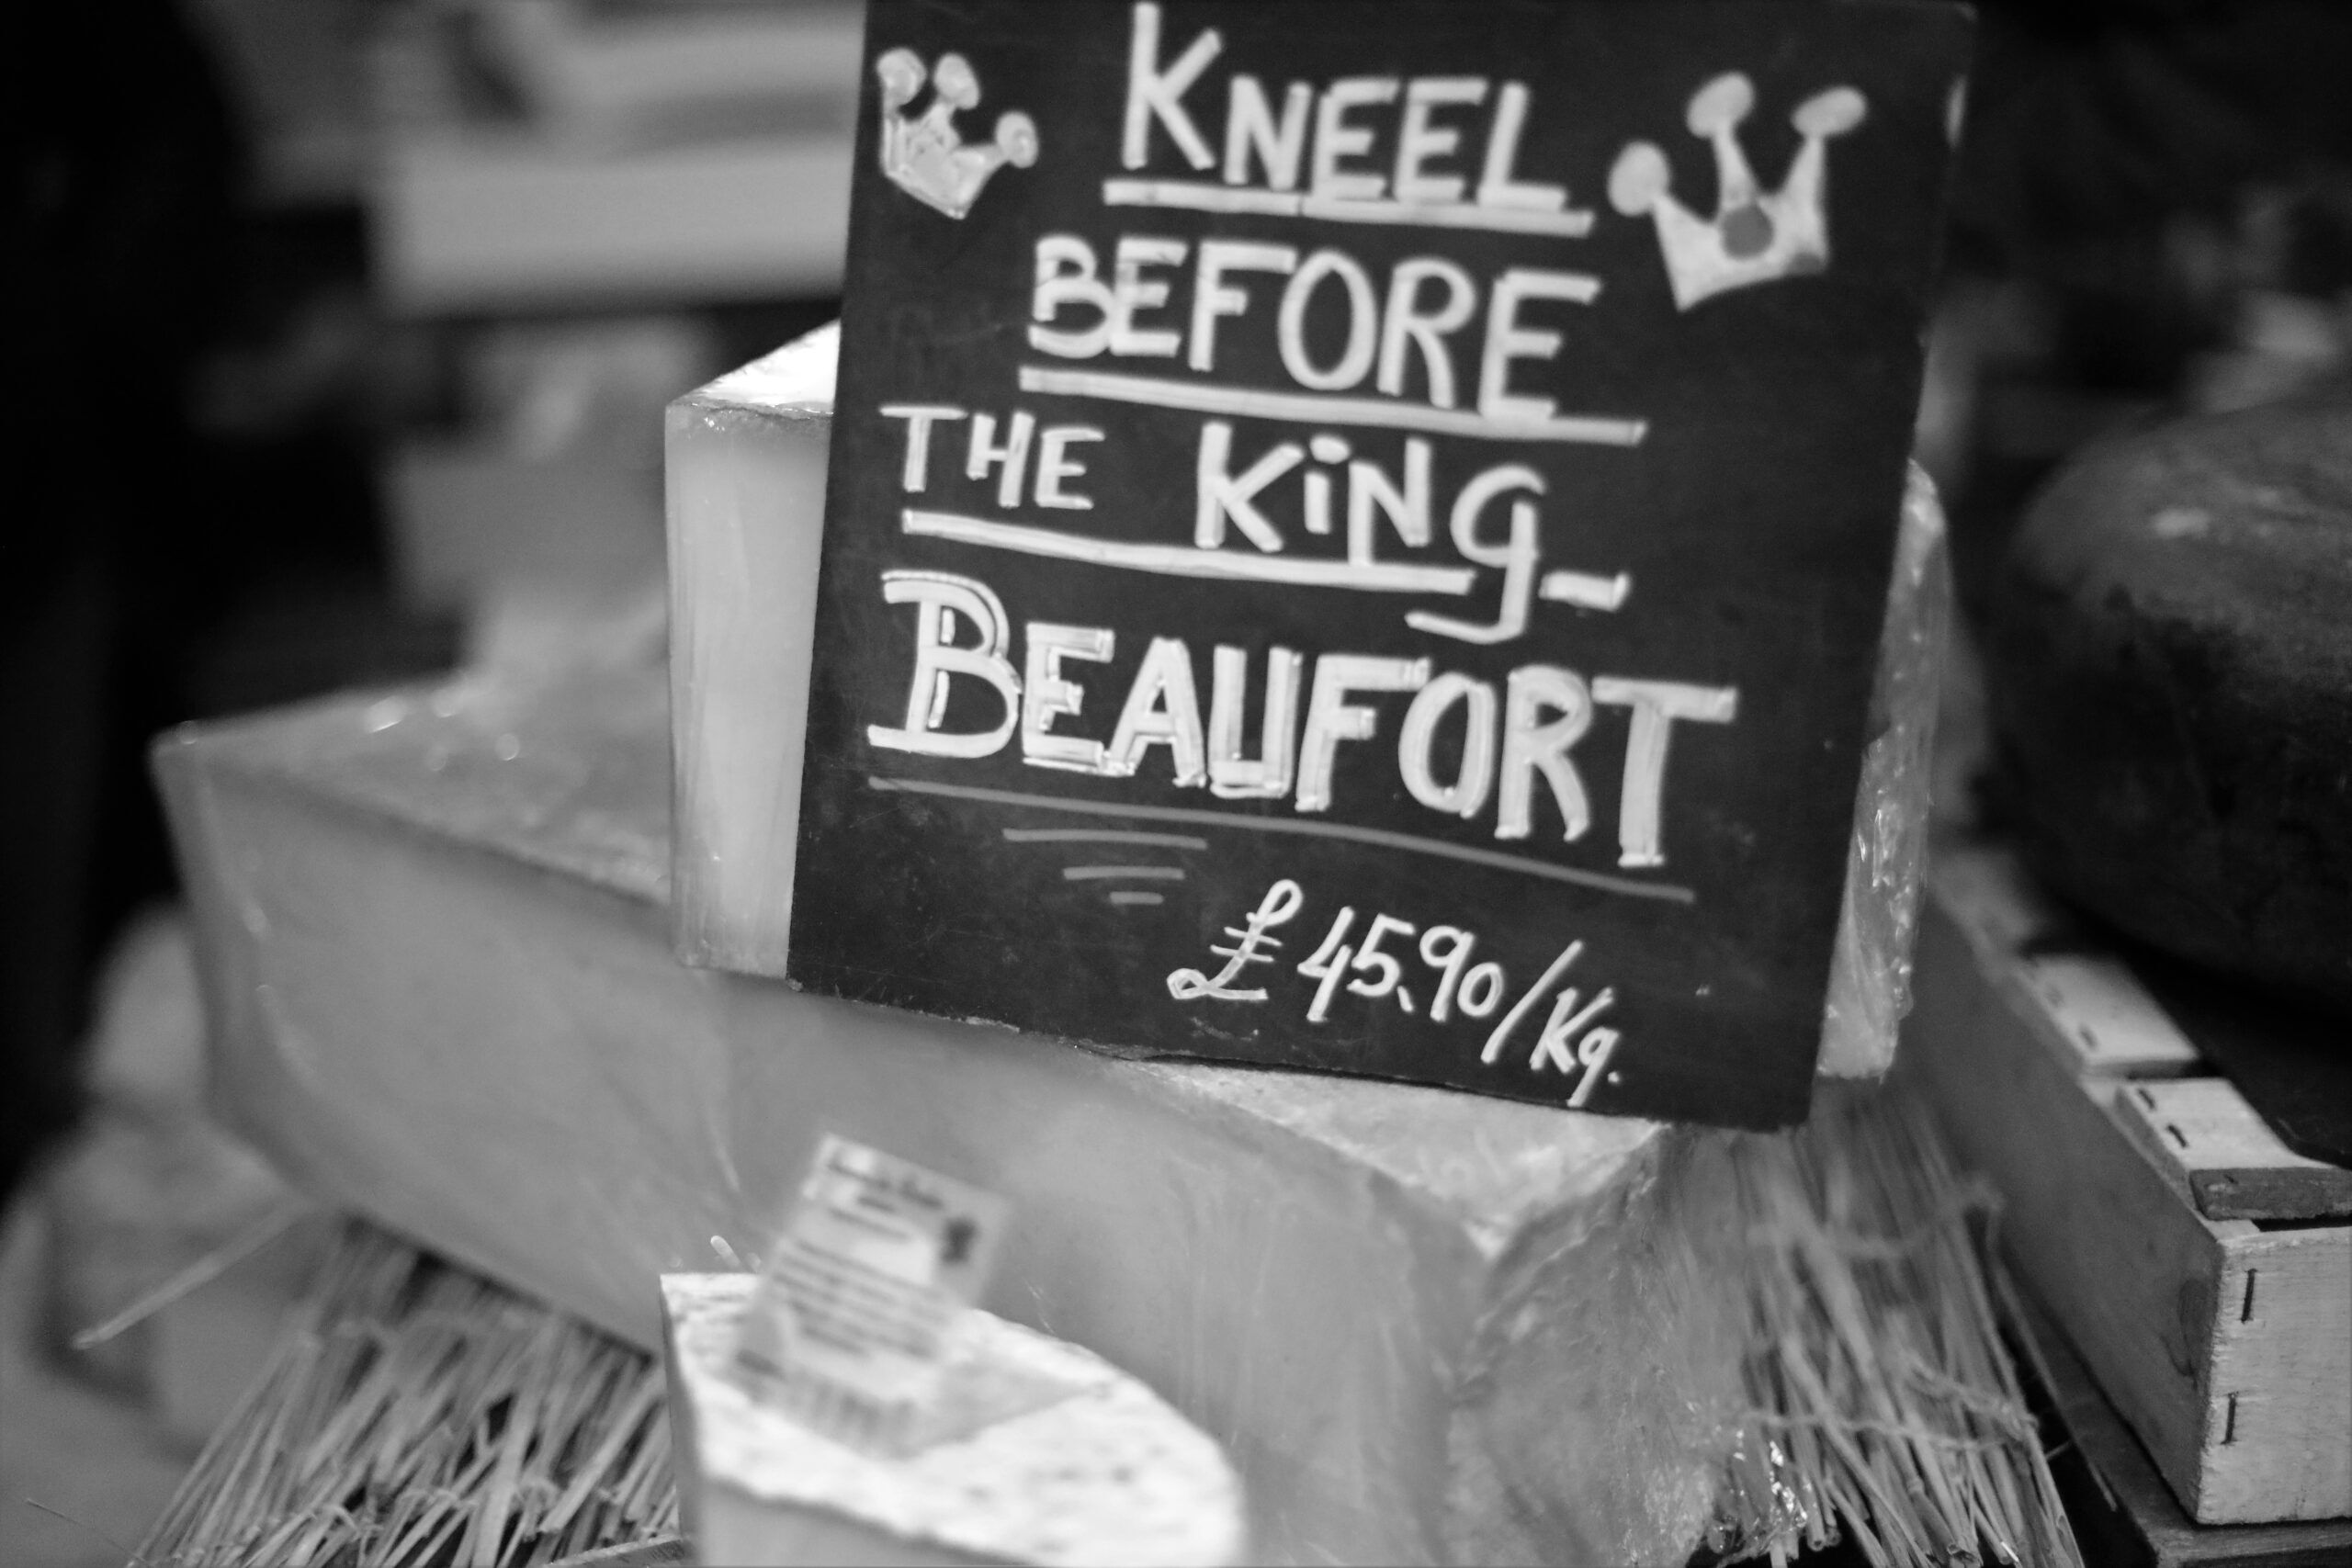 KNEEL
BEFORE
THE KiNg-
BEAUFORT
£45.90/Kg.